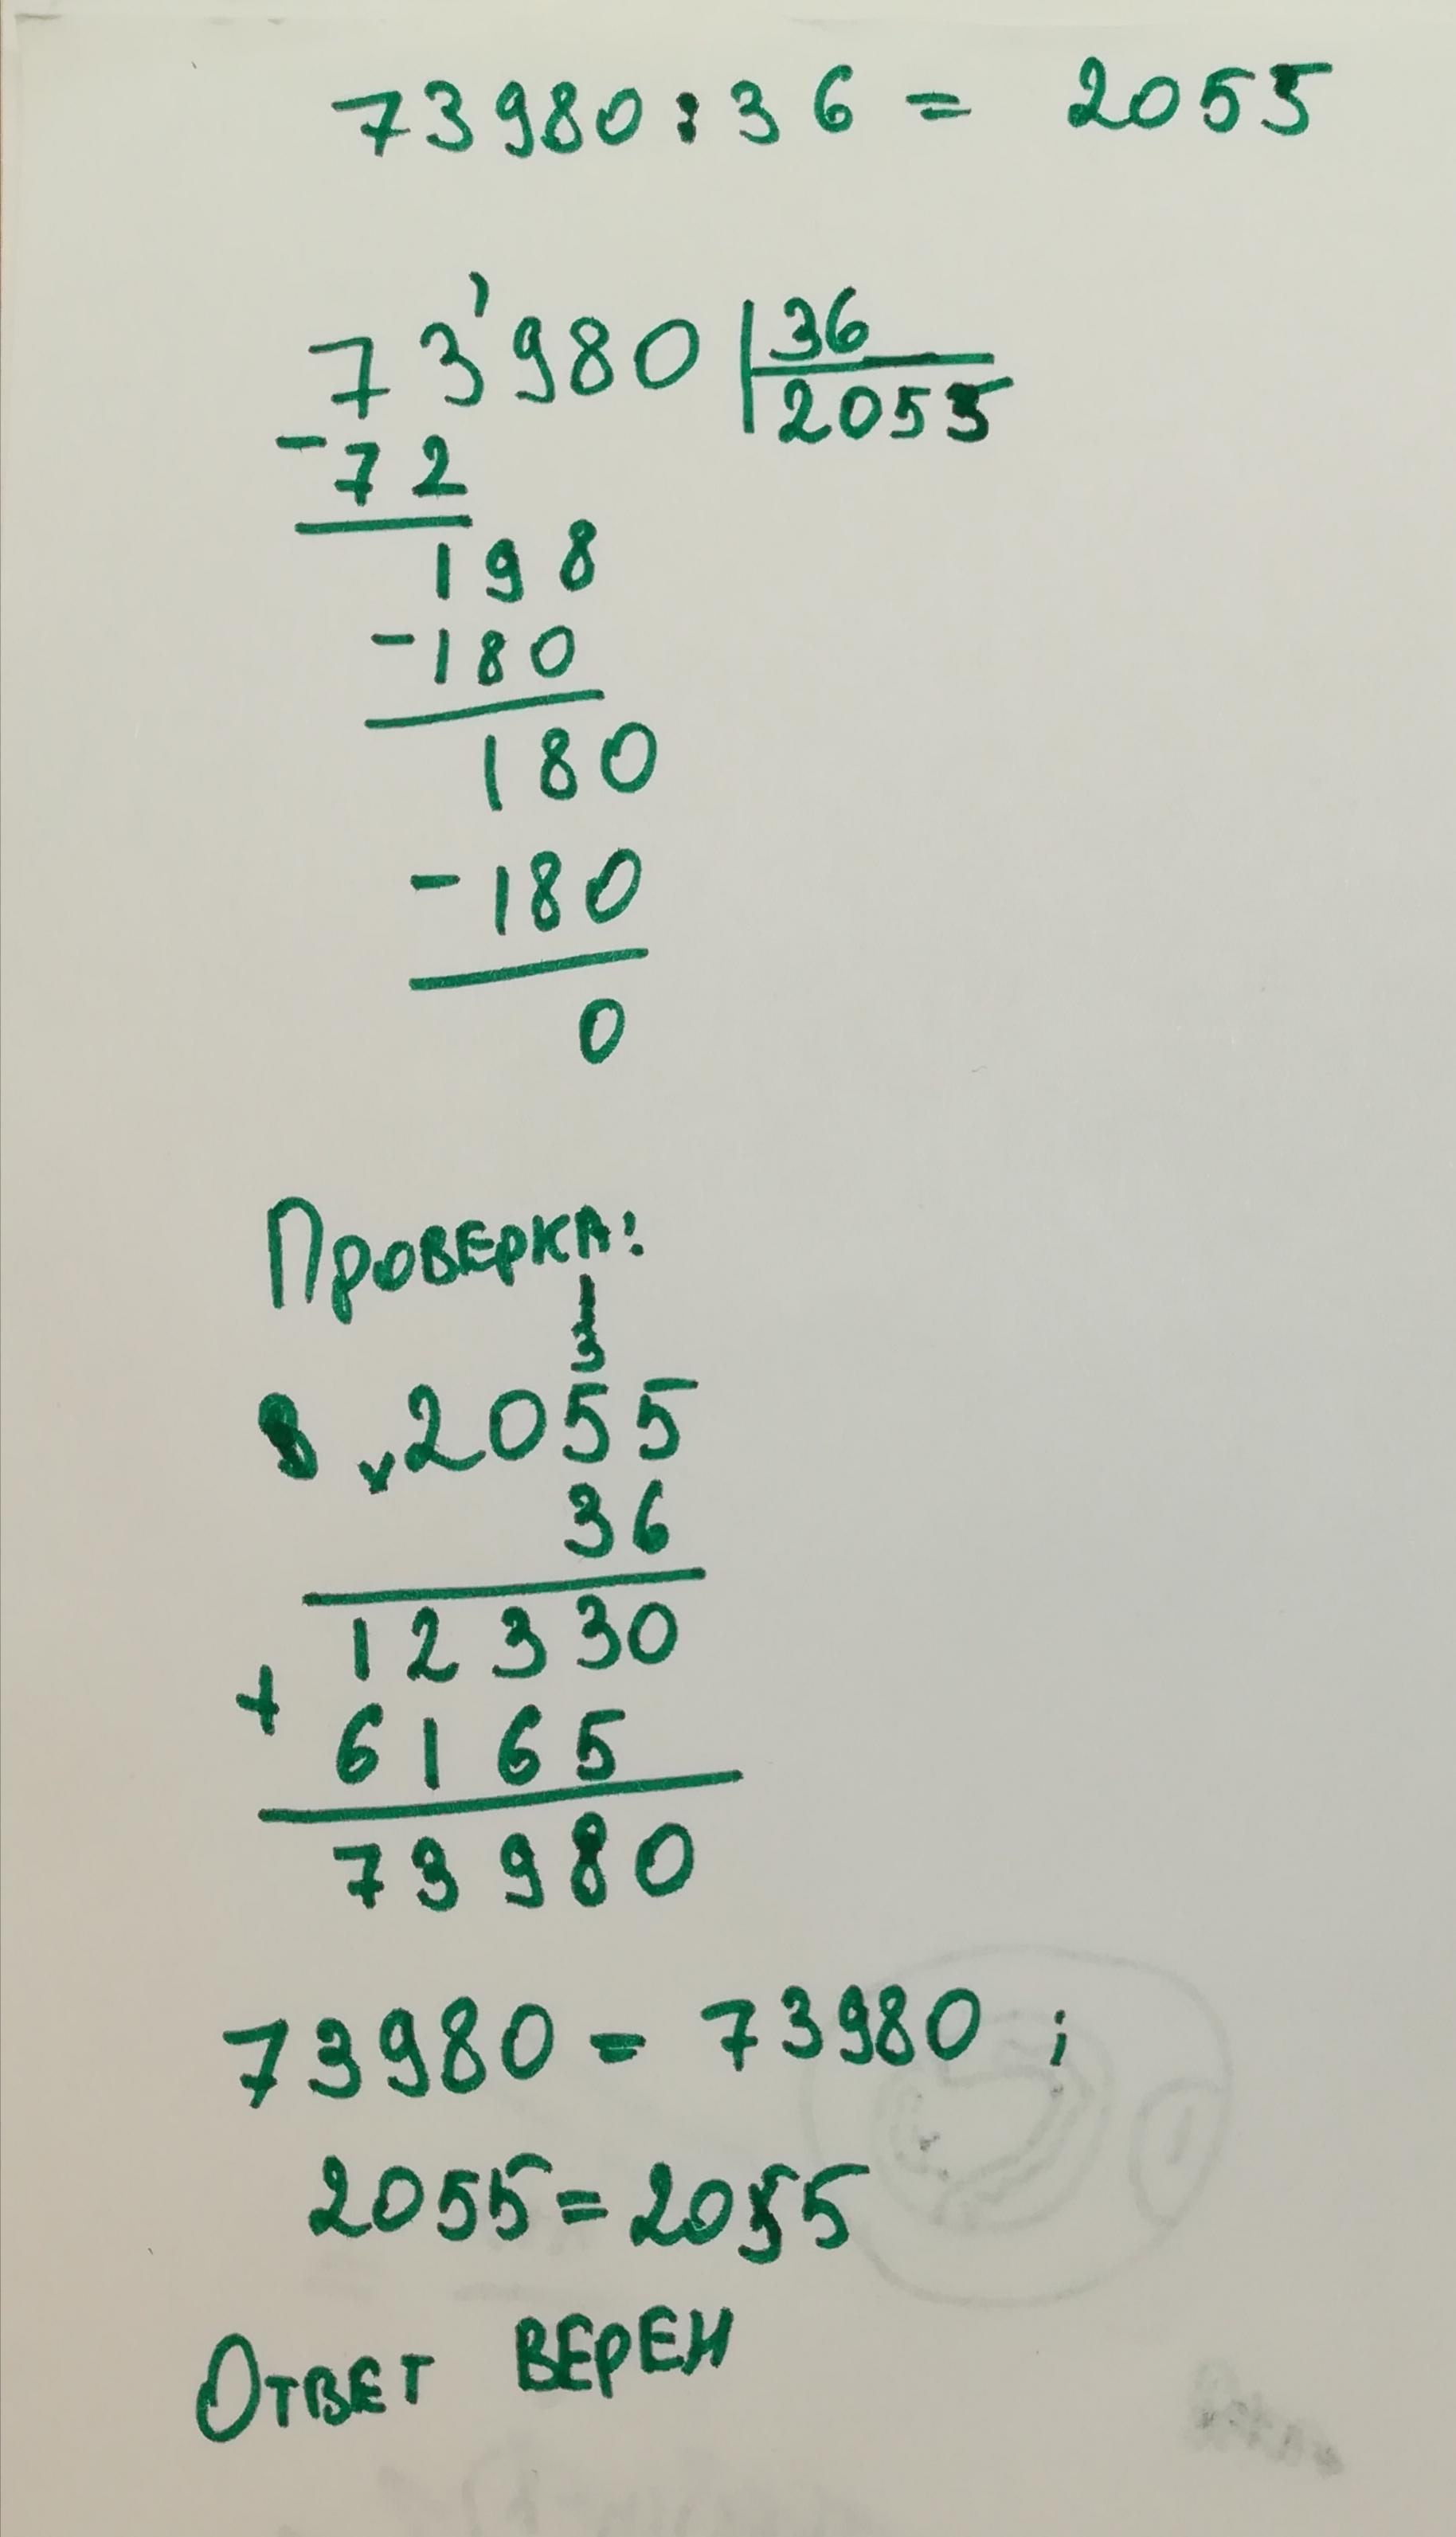 73980:36 = 2055
73'980 36
2055
-72
198
-180
180
-180
0
Проверка:
3
x2055
36
12330
+
6165
73980
73980 = 73980 ;
2055=2055
Ответ верен